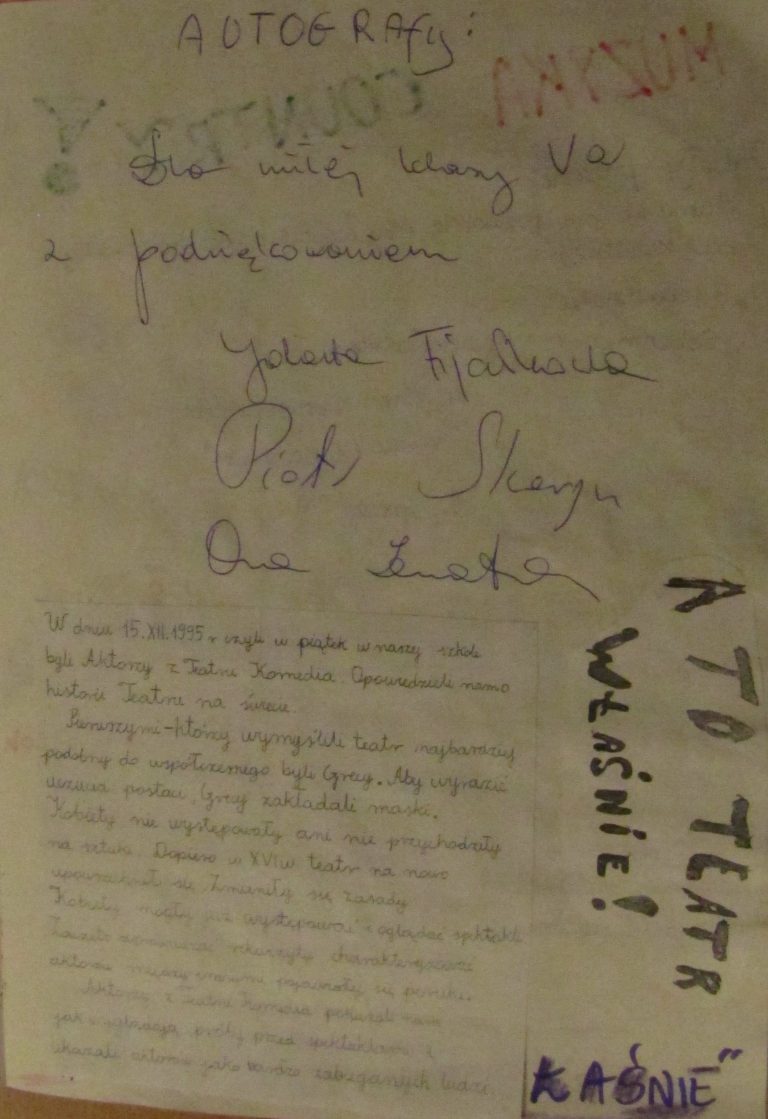 AUTOGRAFY:
MUZYKA
COUNTRY!
Dla miłej klasy Va
z podziękowaniem
Jolanta Fijałkowska
Piotr Skarga
W dniu 15.XII.1995 r czyli w piątek w naszej szkole
byli Aktorzy z Teatru Komedia. Opowiedzieli nam o
historii Teatru na świecie.
Pierwszymi-którzy wymyślili teatr najbardziej
podobny do współczesnego byli Grecy. Aby wyrazić
uczucia postaci, Grecy zakładali maski.
Kobiety nie występowały ani nie przychodziły
na sztuki. Dopiero w XVI w teatr na nowo
upowszechnił się. Zmieniły się zasady
Kobiety mogły już występować i oglądać spektakle
Zaczęto używać charakteryzacji
aktorzy peruki.
Aktorzy z Teatru Komedia pokazali nam
jak wyglądają próby przed spektaklami i
ukazali aktorów jako bardzo zabieganych ludzi.
A TO TEATR
WŁAŚNIE!
ŁAŚNIE"